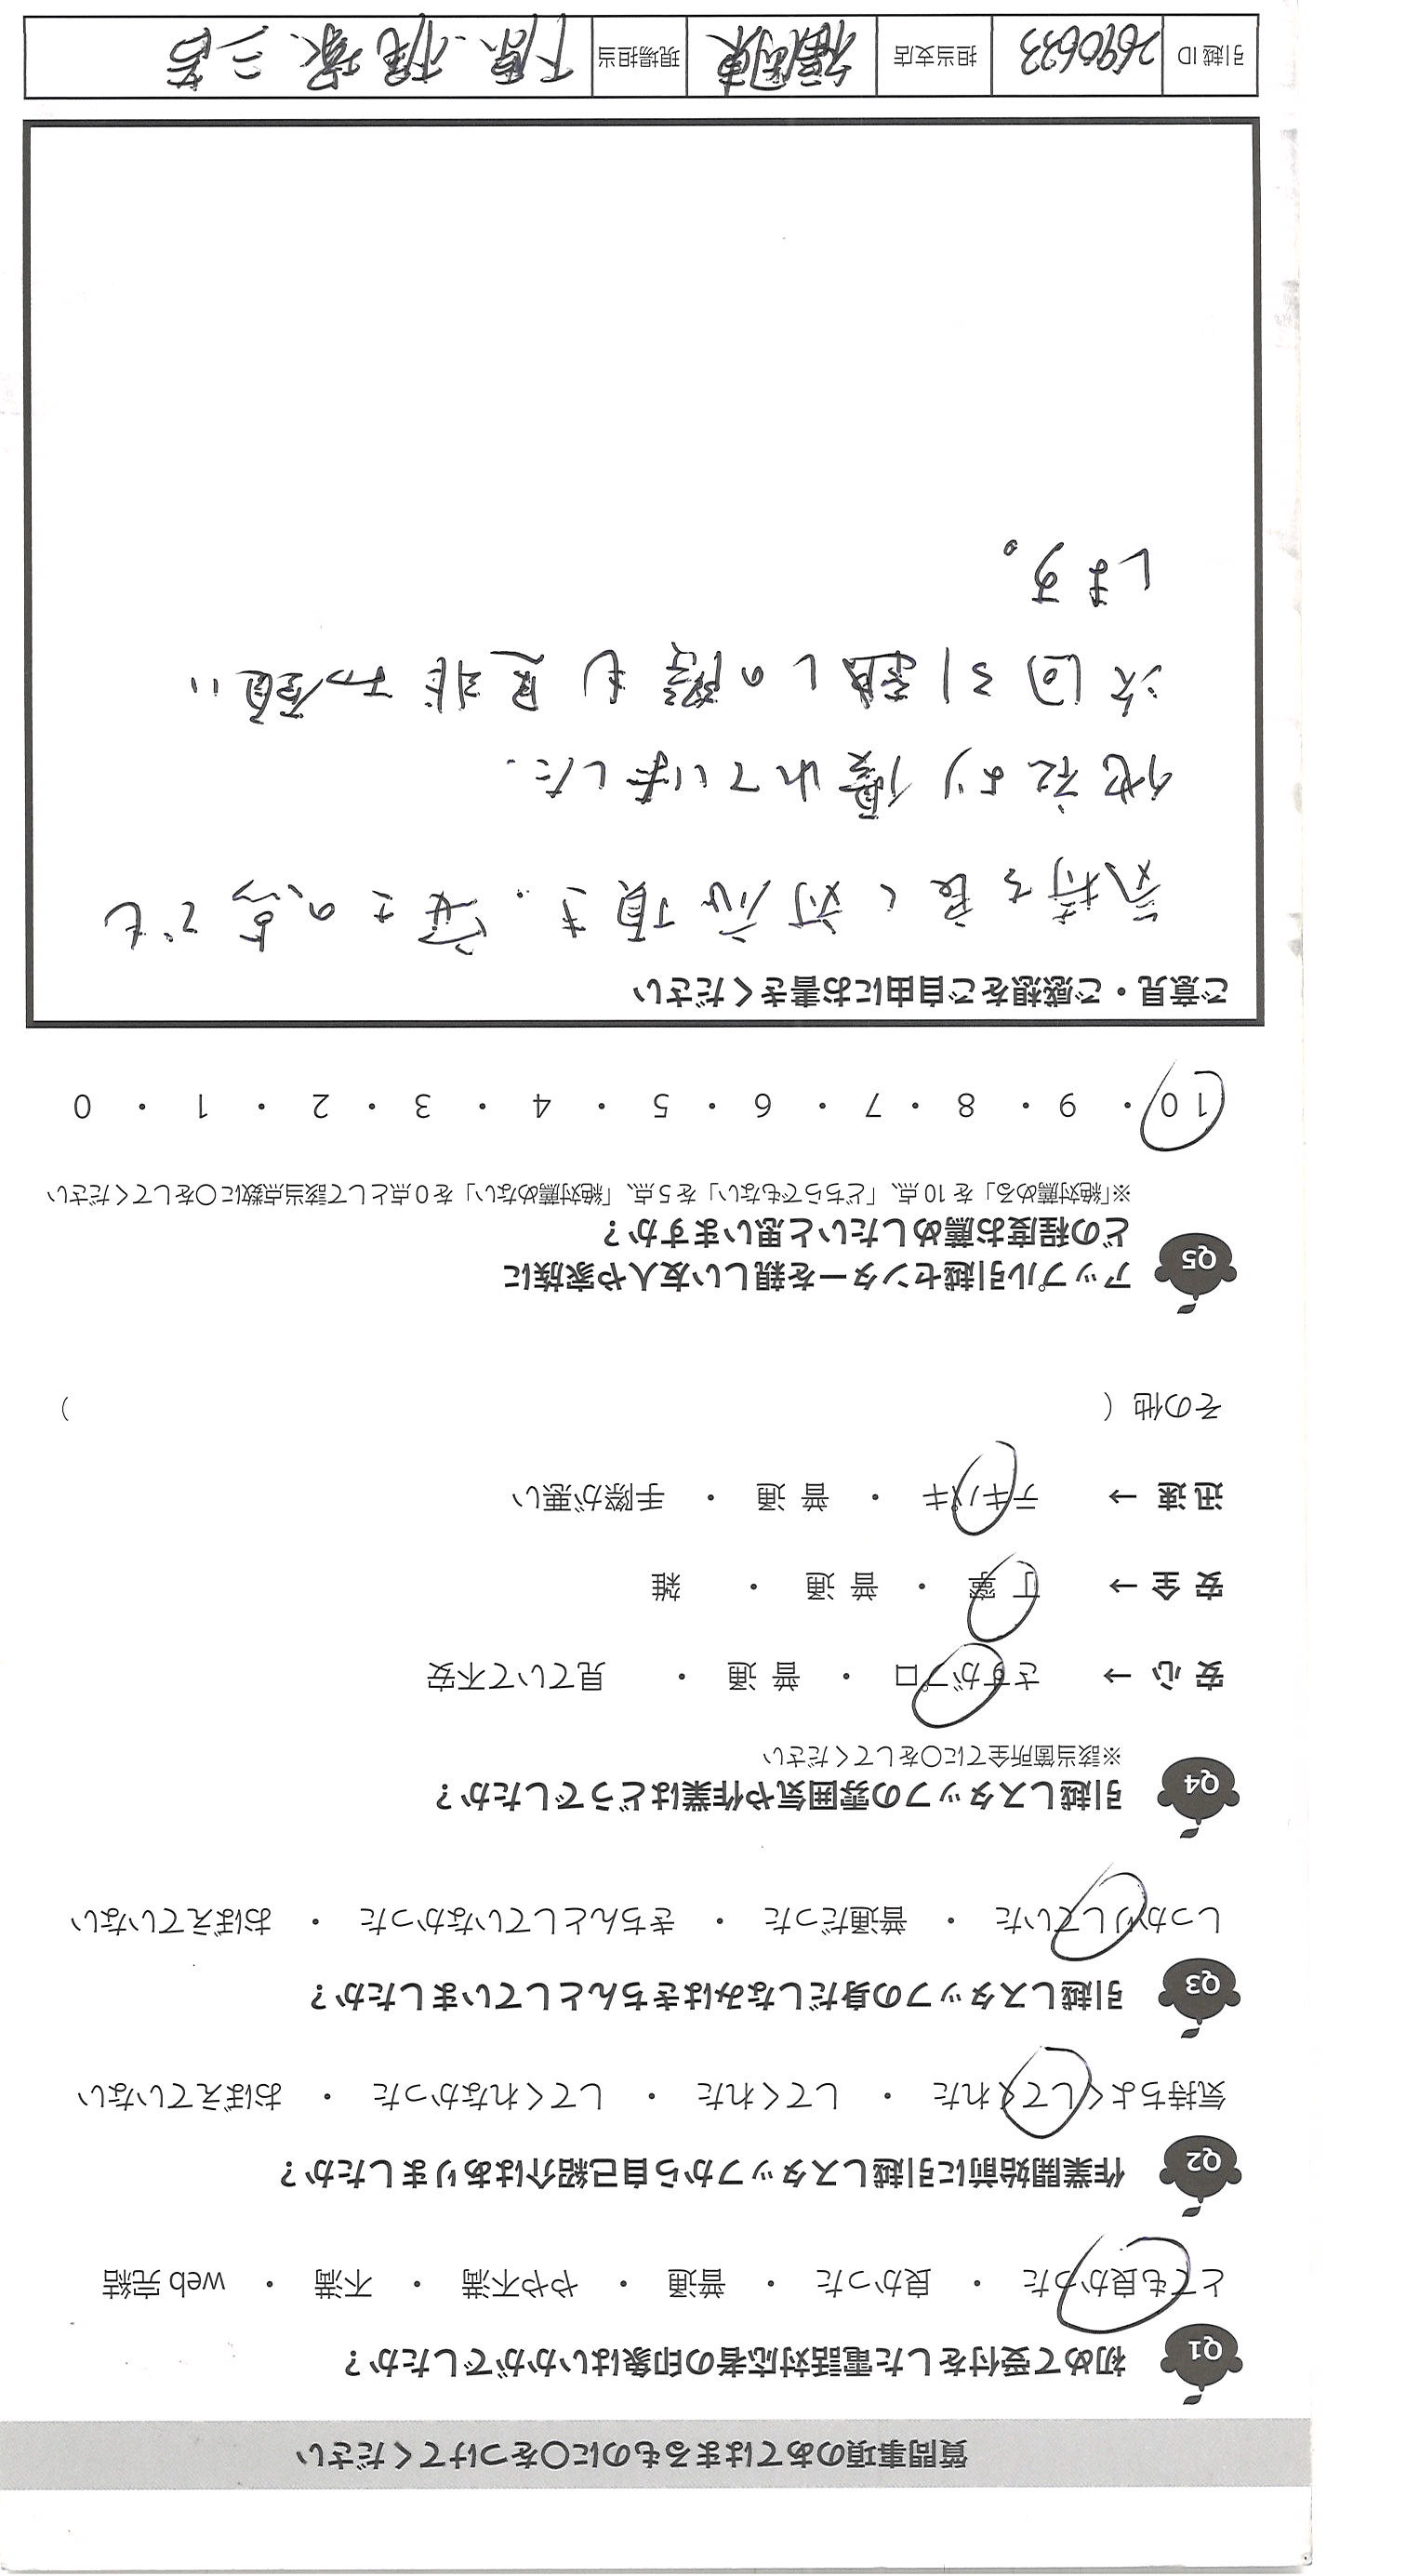 質問事項のあてはまるものに〇をつけてください
Q1 初めて受付をした電話対応者の印象はいかがでしたか？
とても良かった ・ 良かった ・ 普通 ・ やや不満 ・ 不満 ・ web 完結
Q2 作業開始前に引越しスタッフから自己紹介はありましたか？
気持ちよくしてくれた ・ してくれた ・ してくれなかった ・ おぼえていない
Q3 引越しスタッフの身だしなみはきちんとしていましたか？
しっかりしていた ・ 普通だった ・ きちんとしていなかった ・ おぼえていない
Q4 引越しスタッフの雰囲気や作業はどうでしたか？
※該当箇所全てに〇をしてください
安 心 → さすがプロ ・ 普 通 ・ 見ていて不安
安 全 → 丁 寧 ・ 普 通 ・ 雑
迅 速 → テキパキ ・ 普 通 ・ 手際が悪い
その他（ ）
Q5 アップル引越センターを親しい友人や家族に
どの程度お薦めしたいと思いますか？
※「絶対薦める」を 10 点、「どちらでもない」を 5 点、「絶対薦めない」を 0 点として該当点数に〇をしてください
10 ・ 9 ・ 8 ・ 7 ・ 6 ・ 5 ・ 4 ・ 3 ・ 2 ・ 1 ・ 0
ご意見・ご感想をご自由にお書きください
気持ち良く対応頂き、安さの点でも
他社より優れていました.
次回引越しの際も是非お願い
します。
引越 ID 2690633 担当支店 福岡東 現場担当 下原、